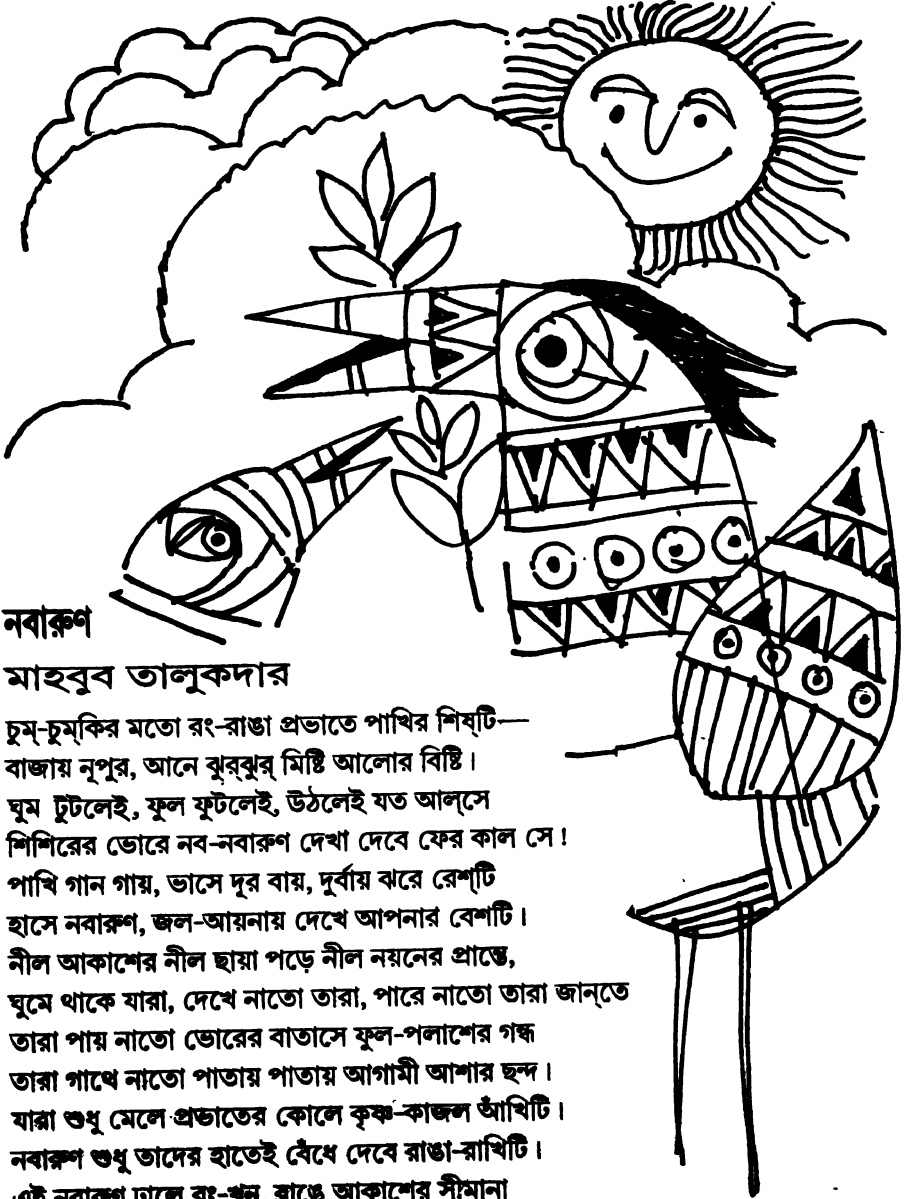 নবারুণ
মাহবুব তালুকদার
চুম্-চুম্‌কির মতো রং-রাঙা প্রভাতে পাখির শিষ্‌টি—
বাজায় নূপুর, আনে ঝুর্‌ঝুর্ মিষ্টি আলোর বিষ্টি।
ঘুম টুটলেই, ফুল ফুটলেই, উঠলেই যত আল্‌সে
শিশিরের ভোরে নব-নবারুণ দেখা দেবে ফের কাল সে!
পাখি গান গায়, ভাসে দূর বায়, দুর্বায় ঝরে রেশ্‌টি
হাসে নবারুণ, জল-আয়নায় দেখে আপনার বেশটি।
নীল আকাশের নীল ছায়া পড়ে নীল নয়নের প্রান্তে,
ঘুমে থাকে যারা, দেখে নাতো তারা, পারে নাতো তারা জান্‌তে
তারা পায় নাতো ভোরের বাতাসে ফুল-পলাশের গন্ধ
তারা গাথে নাতো পাতায় পাতায় আগামী আশার ছন্দ।
যারা শুধু মেলে প্রভাতের কোলে কৃষ্ণ-কাজল আঁখিটি।
নবারুণ শুধু তাদের হাতেই বেঁধে দেবে রাঙা-রাখিটি।
এই নবারুণ ঢালে রং-খুন, রাঙে আকাশের সীমানা